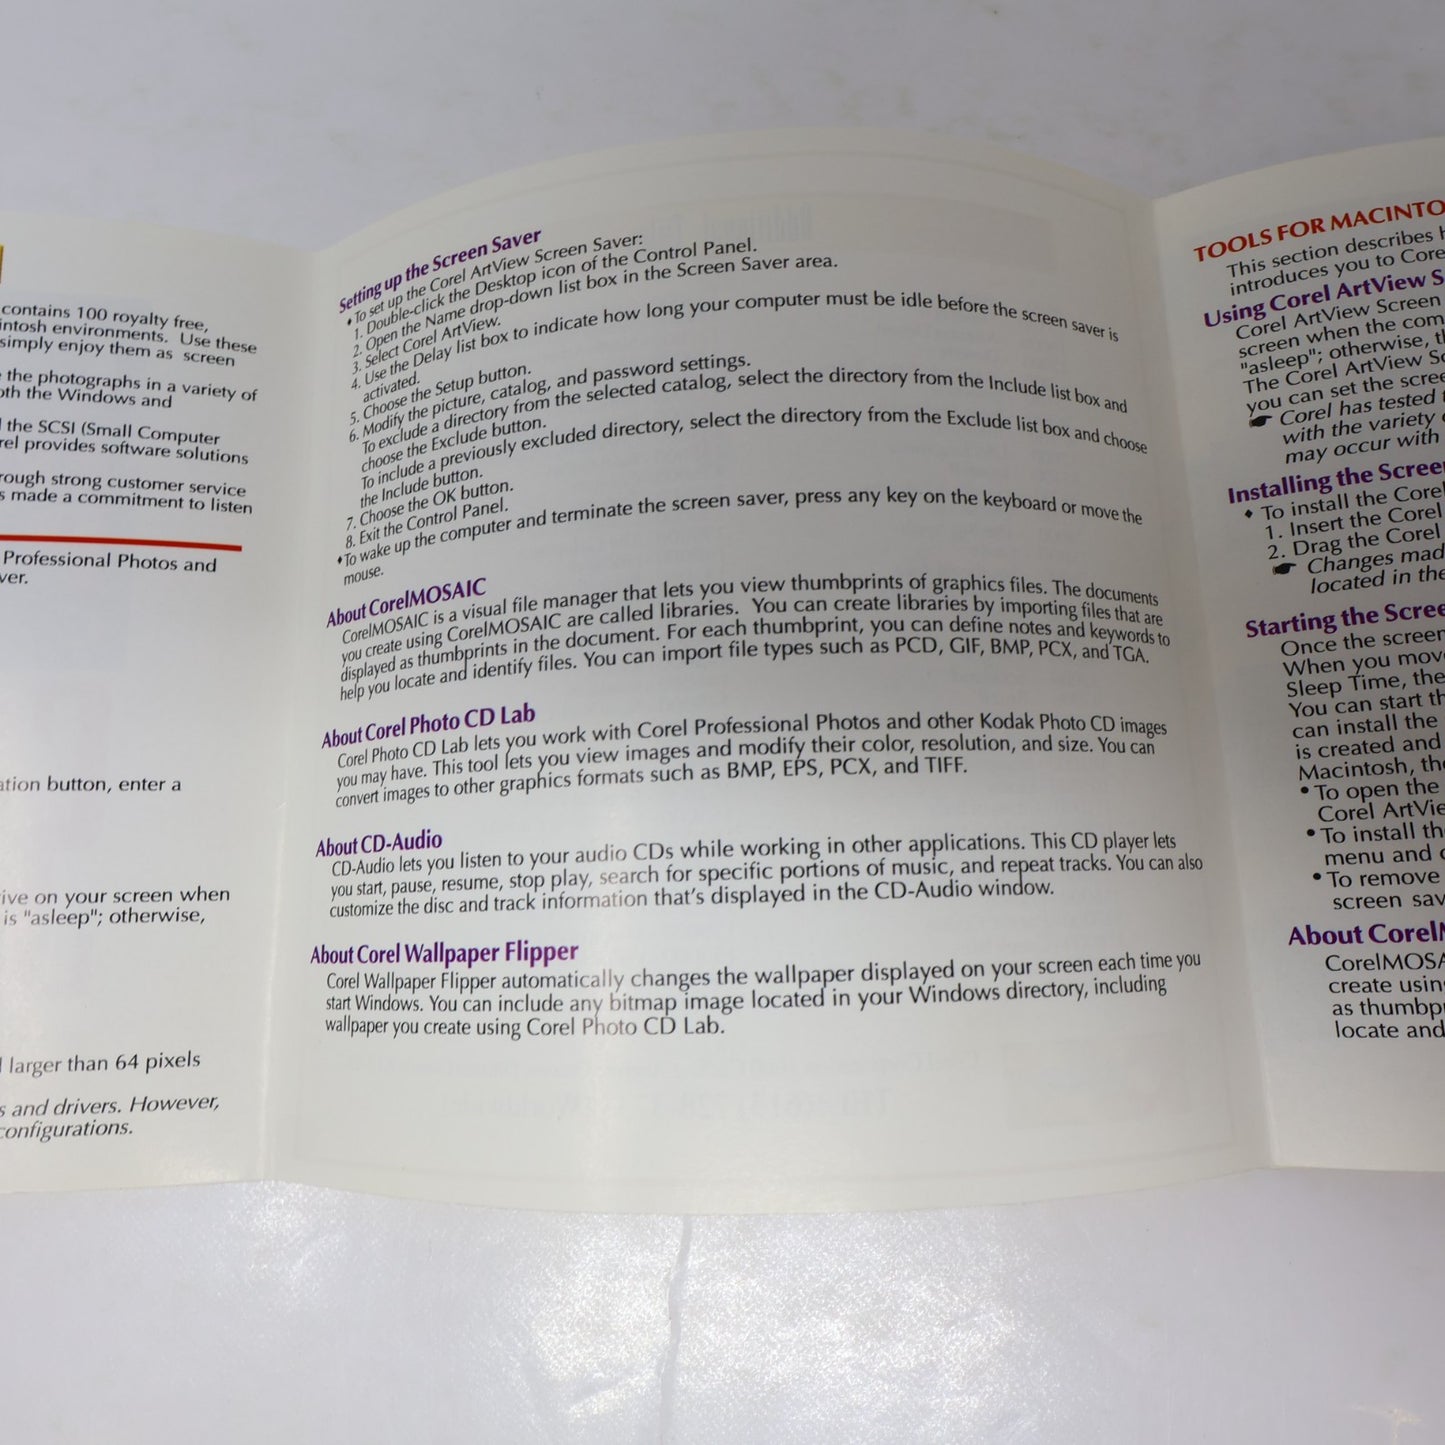 contains 100 royalty free,
intosh environments. Use these
simply enjoy them as screen
the photographs in a variety of
oth the Windows and
the SCSI (Small Computer
rel provides software solutions
rough strong customer service
s made a commitment to listen
Professional Photos and
ver.
ation button, enter a
ive on your screen when
is "asleep"; otherwise,
larger than 64 pixels
s and drivers. However,
configurations.
Setting up the Screen Saver
♦To set up the Corel ArtView Screen Saver:
1. Double-click the Desktop icon of the Control Panel.
2. Open the Name drop-down list box in the Screen Saver area.
3. Select Corel ArtView.
4. Use the Delay list box to indicate how long your computer must be idle before the screen saver is
activated.
5. Choose the Setup button.
6. Modify the picture, catalog, and password settings.
To exclude a directory from the selected catalog, select the directory from the Include list box and
choose the Exclude button.
To include a previously excluded directory, select the directory from the Exclude list box and choose
the Include button.
7. Choose the OK button.
8. Exit the Control Panel.
♦To wake up the computer and terminate the screen saver, press any key on the keyboard or move the
mouse.
About CorelMOSAIC
CorelMOSAIC is a visual file manager that lets you view thumbprints of graphics files. The documents
you create using CorelMOSAIC are called libraries. You can create libraries by importing files that are
displayed as thumbprints in the document. For each thumbprint, you can define notes and keywords to
help you locate and identify files. You can import file types such as PCD, GIF, BMP, PCX, and TGA.
About Corel Photo CD Lab
Corel Photo CD Lab lets you work with Corel Professional Photos and other Kodak Photo CD images
you may have. This tool lets you view images and modify their color, resolution, and size. You can
convert images to other graphics formats such as BMP, EPS, PCX, and TIFF.
About CD-Audio
CD-Audio lets you listen to your audio CDs while working in other applications. This CD player lets
you start, pause, resume, stop play, search for specific portions of music, and repeat tracks. You can also
customize the disc and track information that's displayed in the CD-Audio window.
About Corel Wallpaper Flipper
Corel Wallpaper Flipper automatically changes the wallpaper displayed on your screen each time you
start Windows. You can include any bitmap image located in your Windows directory, including
wallpaper you create using Corel Photo CD Lab.
TOOLS FOR MACINTO
This section describes h
introduces you to Core
Using Corel ArtView S
Corel ArtView Screen
screen when the com
"asleep"; otherwise, t
The Corel ArtView Sc
you can set the scree
☛ Corel has tested t
with the variety o
may occur with
Installing the Screen
♦ To install the Corel
1. Insert the Corel
2. Drag the Corel
☛ Changes mad
located in the
Starting the Scree
Once the screen
When you move
Sleep Time, the
You can start th
can install the
is created and
Macintosh, the
• To open the
Corel ArtVie
• To install th
menu and c
• To remove
screen sav
About CorelM
CorelMOSA
create usin
as thumbpr
locate and